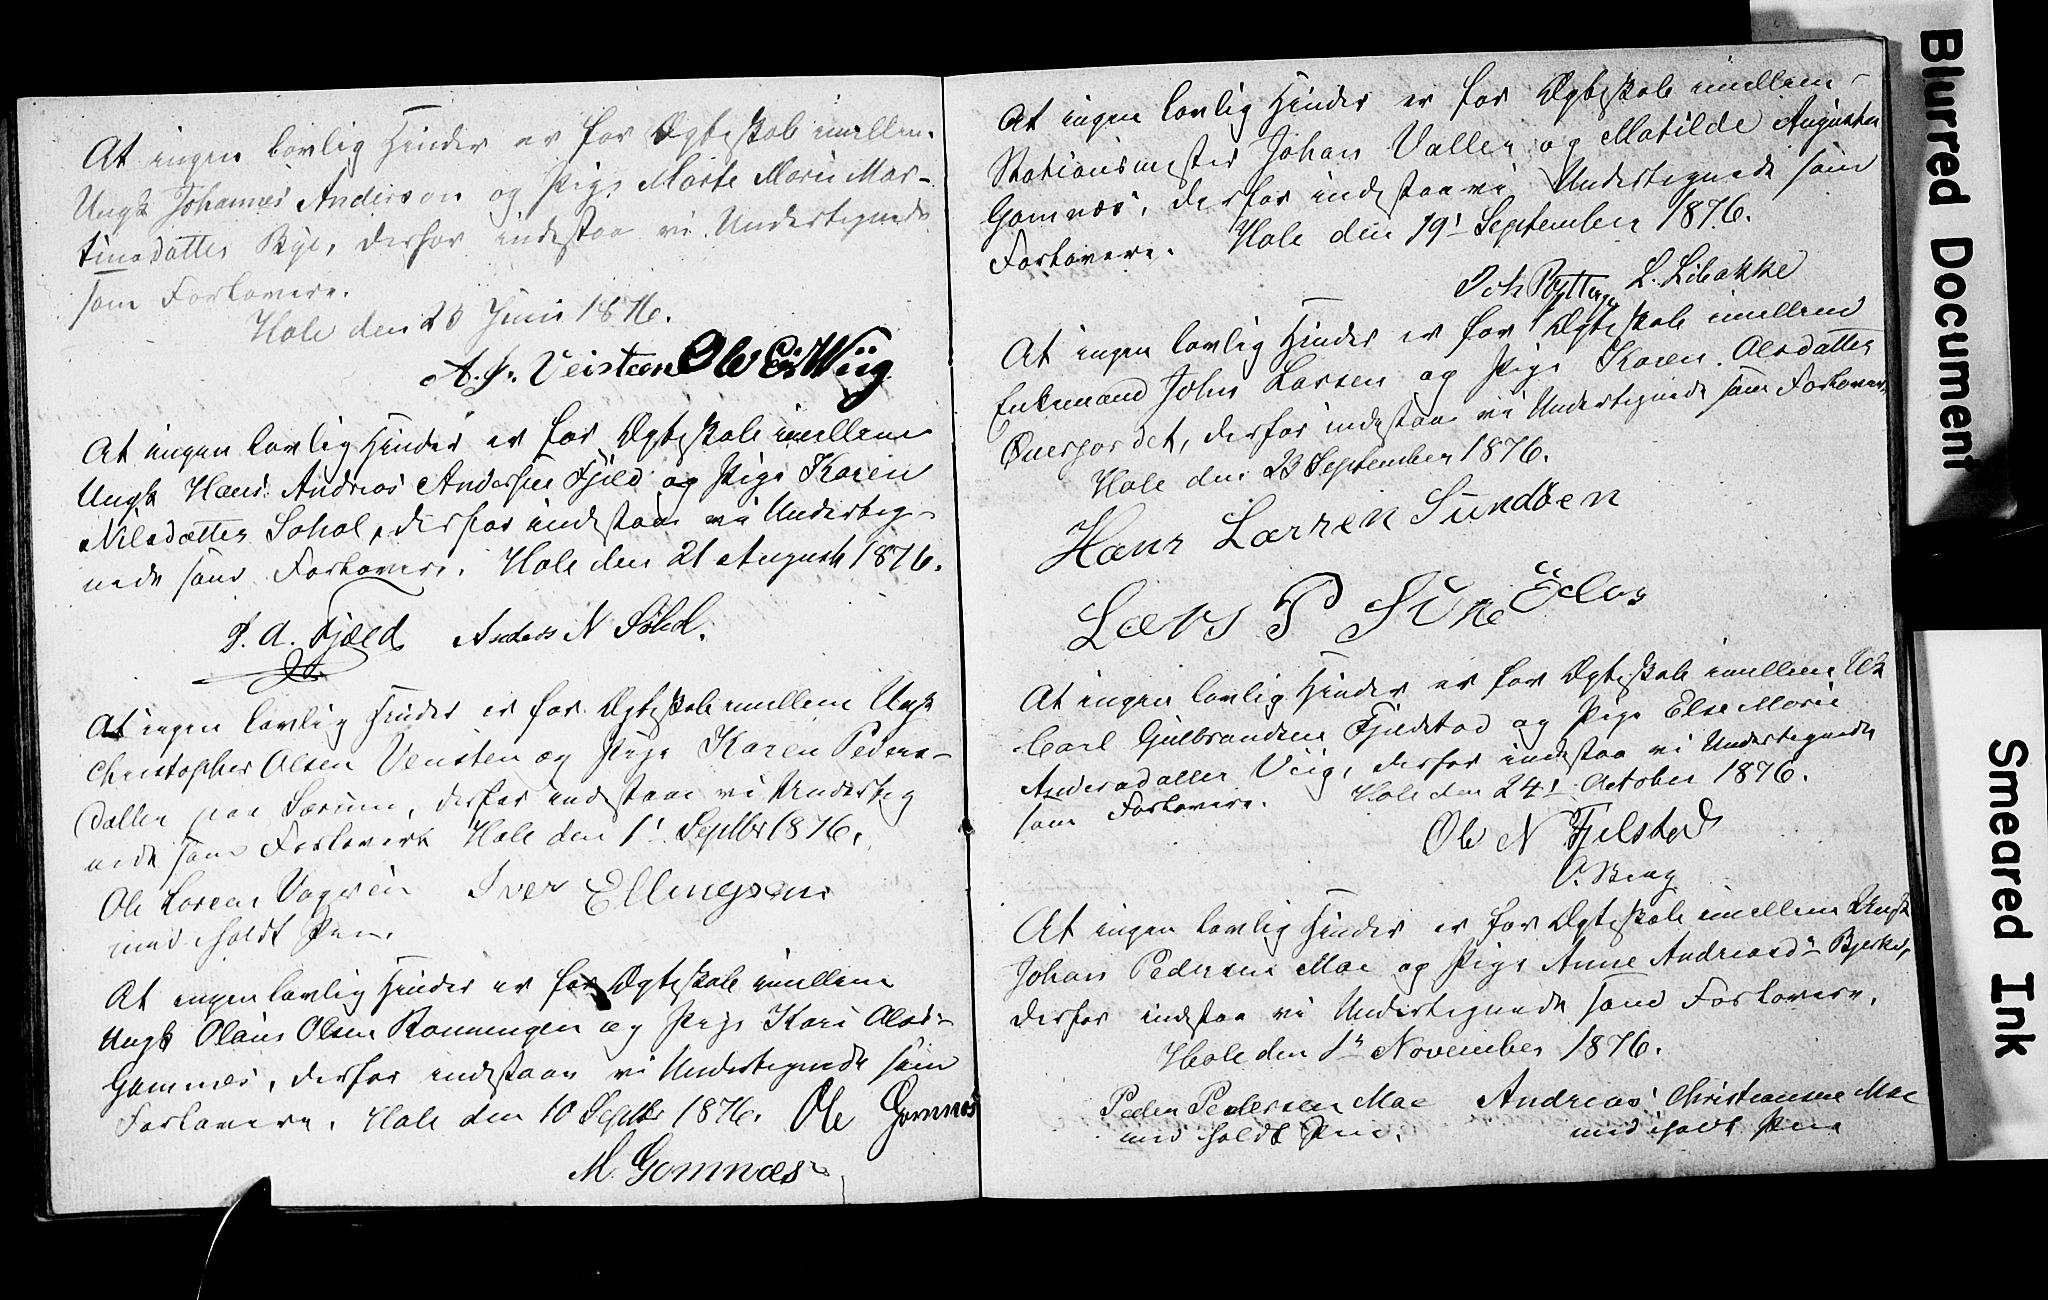 At ingen lovlig Hinder er for Ægteskab imellem
Ungk Johannes Anderson og Pige Marte Marie Mar-
tinsdatter Bye, derfor indestaa vi Undertegnede
som Forlovere.
Hole den 23 Juni 1876.
A. J. Veisteen Ole Er Wiig
At ingen lovlig Hinder er for Ægteskab imellem
Ungk Hans Andreas Andersen Fjeld og Pige Karen
Nilsdatter Sohol, derfor indestaa vi Underteg-
nede som Forlovere. Hole den 21 August 1876.
P. A. Fjæld Anders N Sohol.
At ingen lovlig Hinder er for Ægteskab imellem Ungk
Christopher Olsen Veisten og Pige Karen Peders-
datter paa Sørum, derfor indestaa vi Underteg
nede som Forlovere Hole den 1' Septbr 1876.
Ole Larsen Iver Ellingsen
med iholdt Pen.
At ingen lovlig Hinder er for Ægteskab imellem
Ungk Olaus Olsen Rønningen og Pige Kari Olsd-
Gomnæs, derfor indestaa vi Undertegnede som
Forlovere. Hole den 10 Septbr 1876. Ole Gomnæs
M. Gomnæs
At ingen lovlig Hinder er for Ægteskab imellem
Stationsmester Johan Valler og Matilde Augusta
Gomnæs, derfor indestaa vi Undertegnede som
Forlovere. Hole den 19' September 1876.
Joh L. Libakke
At ingen lovlig Hinder er for Ægteskab imellem
Enkemand John Larsen og Pige Karen Olsdatter
derfor indestaa vi Undertegnede som Forlovere
Hole den 23 September 1876.
Hans Larsen Sundøen
Lars P
At ingen lovlig Hinder er for Ægteskab imellem Uk
Carl Gulbrandsen Fjeldstad og Pige Else Marie
Andersdatter Viig, derfor indestaa vi Undertegnede
som Forlovere. Hole den 24' October 1876.
Ole N Fjelstad
O. Berg
At ingen lovlig Hinder er for Ægteskab imellem Ungk
Johan Pedersen Moe og Pige Anne Andreasd" Bjerke,
derfor indestaa vi Undertegnede som Forlovere.
Hole den 1" November 1876.
Peder Pedersen Moe Andreas Christiansen Moe
med iholdt Pen. med iholdt Pen
Blurred Document
Smeared Ink